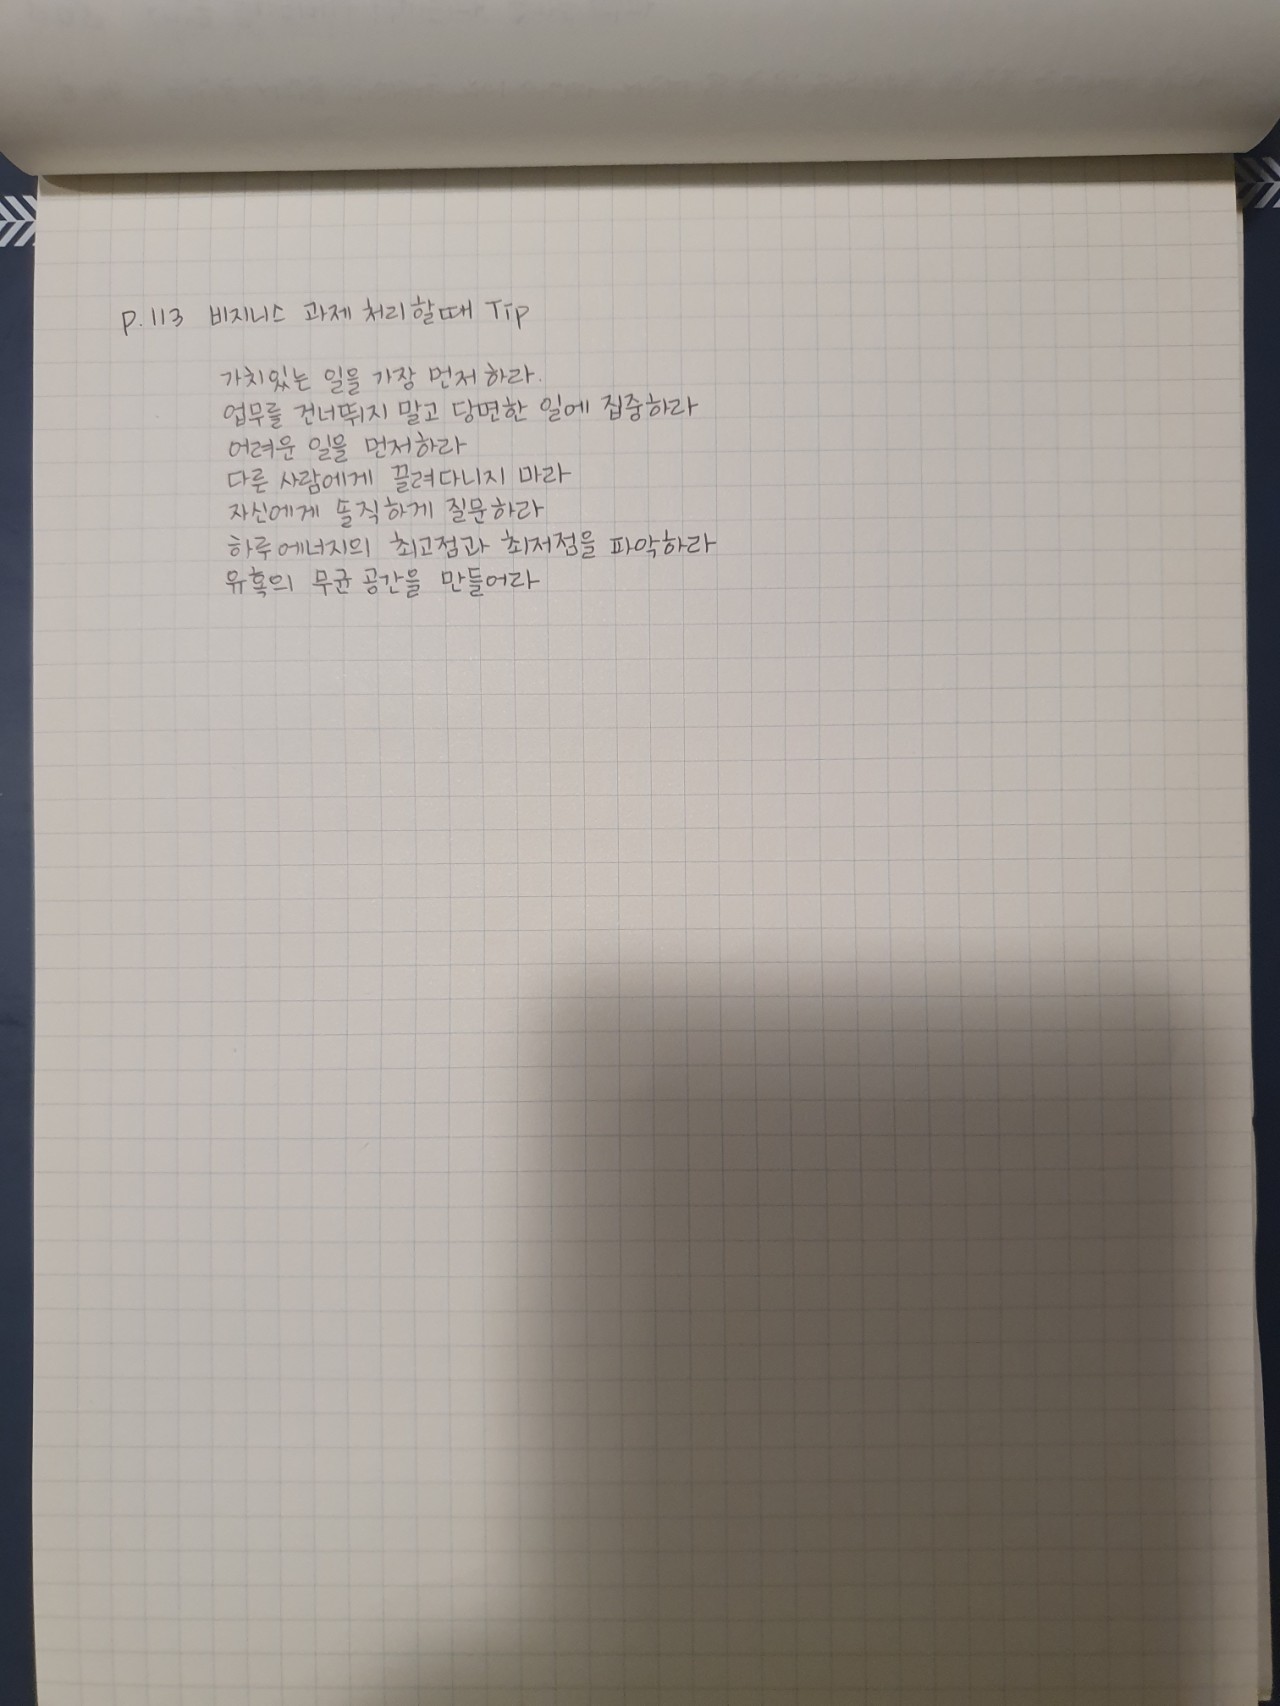 p.113 비지니스 과제 처리할때 Tip
가치있는 일을 가장 먼저 하라.
업무를 건너뛰지 말고 당면한 일에 집중하라
어려운 일을 먼저하라
다른 사람에게 끌려다니지 마라
자신에게 솔직하게 질문하라
하루 에너지의 최고점과 최저점을 파악하라
유혹의 무균 공간을 만들어라